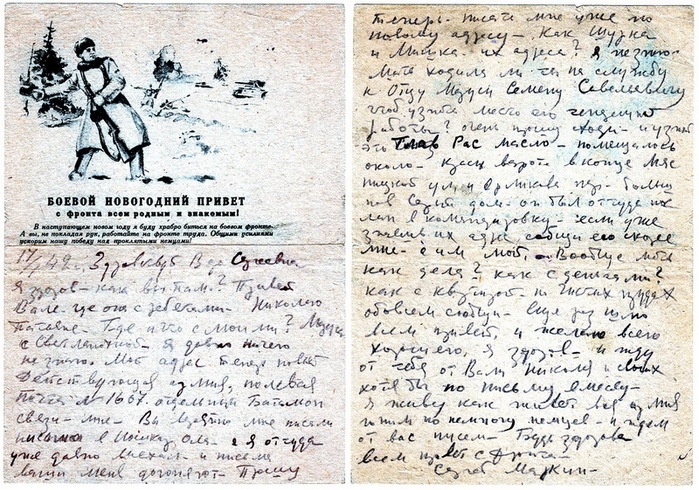 БОЕВОЙ НОВОГОДНИЙ ПРИВЕТ
с фронта всем родным и знакомым!
В наступающем новом году я буду храбро биться на боевом фронте.
А вы, не покладая рук, работайте на фронте труда. Общими усилиями
ускорим нашу победу над проклятыми немцами!
Здравствуй
Я здоров - как вы там? Привет
Вале. где она с ребятами. Николаю
Где и что с моими? Маруся
с Светланкой - я давно ничего
не знаю. Мой адрес теперь новый
Действующая армия, полевая
почта № 1667. отдельный Батальон
связи - мне - Вы мне писали
а я оттуда
уже давно уехал и письма
ваши меня догоняют - Прошу
теперь писать мне уже по
новому адресу - Как Шурка
и Мишка. их адреса? я не знаю.
Мать ходила ли ты на службу
к Отцу Маруси Семену Савельевичу
чтоб узнать место его
работы? очень прошу сходи - и узнай
это Глав Рас масло - помещалось
около - Красных ворот - в конце Мяс
ницкой ул и больш
дом - он был оттуда их
в командировку - если уже
знаешь их адрес, сообщи его скорее
мне - Вообще
как дела? как с деньгами?
как с квартирой - и
обо всем сообщи - Еще раз
всем привет, и желаю всего
хорошего, я здоров - и жду
от тебя от Вали Николая и своих
хотя бы по письму в месяц -
Я живу как живет вся армия
гоним по немногу немцев - и ждем
от вас писем - Будь здорова
всем привет с фронта -
Сергей Маркин -